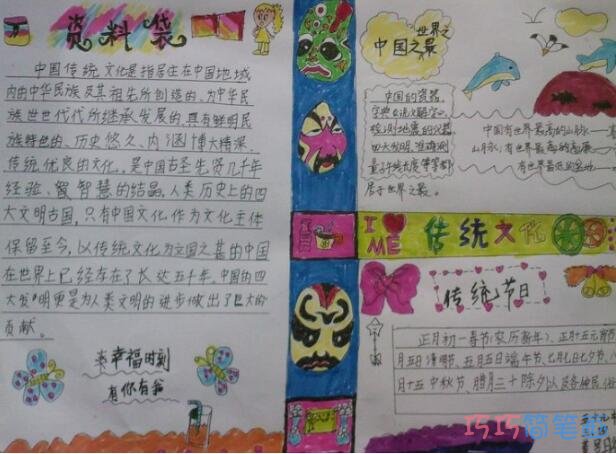 资料袋
中国传统文化是指居住在中国地域
内的中华民族及其祖先所创造的、为中华民
族世世代代所继承发展的、具有鲜明民
族特色的、历史悠久、内涵博大精深、
传统优良的文化。是中国古圣先贤几千年
经验、智慧的结晶,人类历史上的四
大文明古国,只有中国文化作为文化主体
保留至今,以传统文化为立国之基的中国
在世界上已经存在了长达五千年。中国的四
大发明更是为人类文明的进步做出了巨大的
贡献。
幸福时刻
有你有我
世界之
中国之最
中国的瓷器,
四大发明
居于世界之最。
中国有世界最高的山脉
山脉,有世界最高的高原
有世界最低的盆地
I ME 传统文化
传统节日
正月初一春节(农历新年)、正月十五元宵节
月五日清明节、五月五日端午节、七月七日七夕节
月十五中秋节、腊月三十除夕以及各种民俗
巧巧简笔画